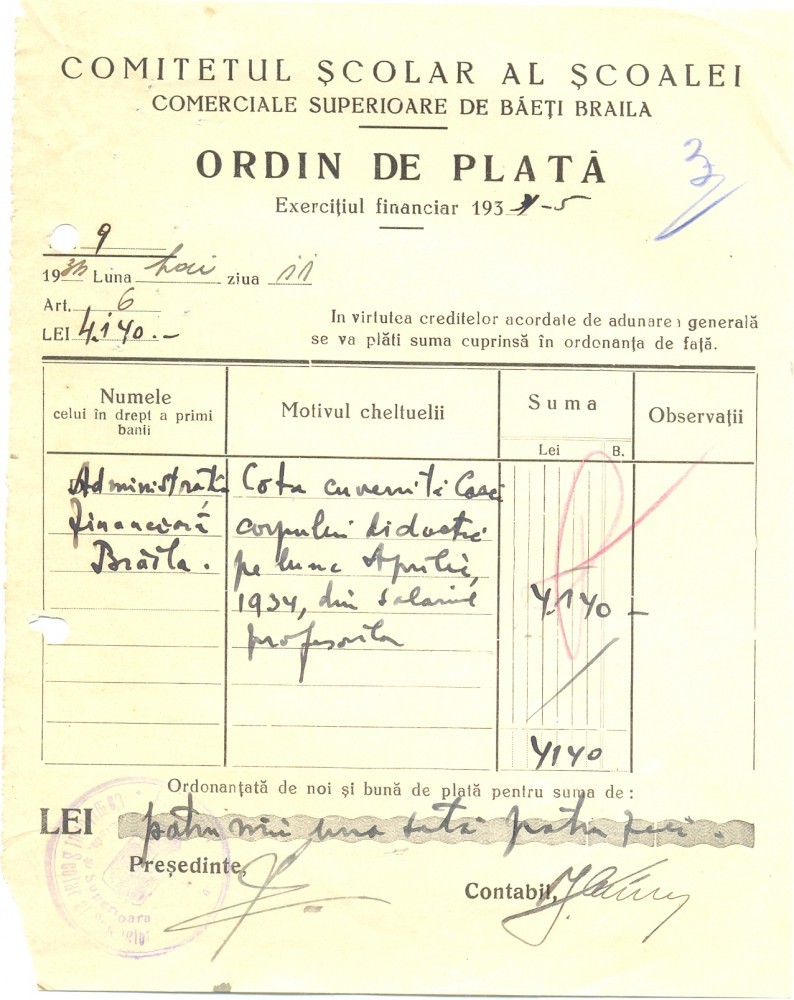 COMITETUL ȘCOLAR AL ȘCOALEI
COMERCIALE SUPERIOARE DE BĂEȚI BRAILA
ORDIN DE PLATĂ
3
Exercițiul financiar 1934-5
9
1934 Luna Mai ziua 11
Art. 6
LEI 4.140.-
In virtutea creditelor acordate de adunarea generală
se va plăti suma cuprinsă în ordonanța de față.
Numele
celui în drept a primi
banii
Motivul cheltuelii
Suma
Lei B.
Observații
Administrația
financiară
Brăila.
Cota cuvenită Casei
corpului didactic
pe luna Aprilie,
1934, din salariul
profesorilor
4.140 -
4140
Ordonanțată de noi și bună de plată pentru suma de:
LEI patru mii una sută patru zeci.
Președinte,
Contabil,